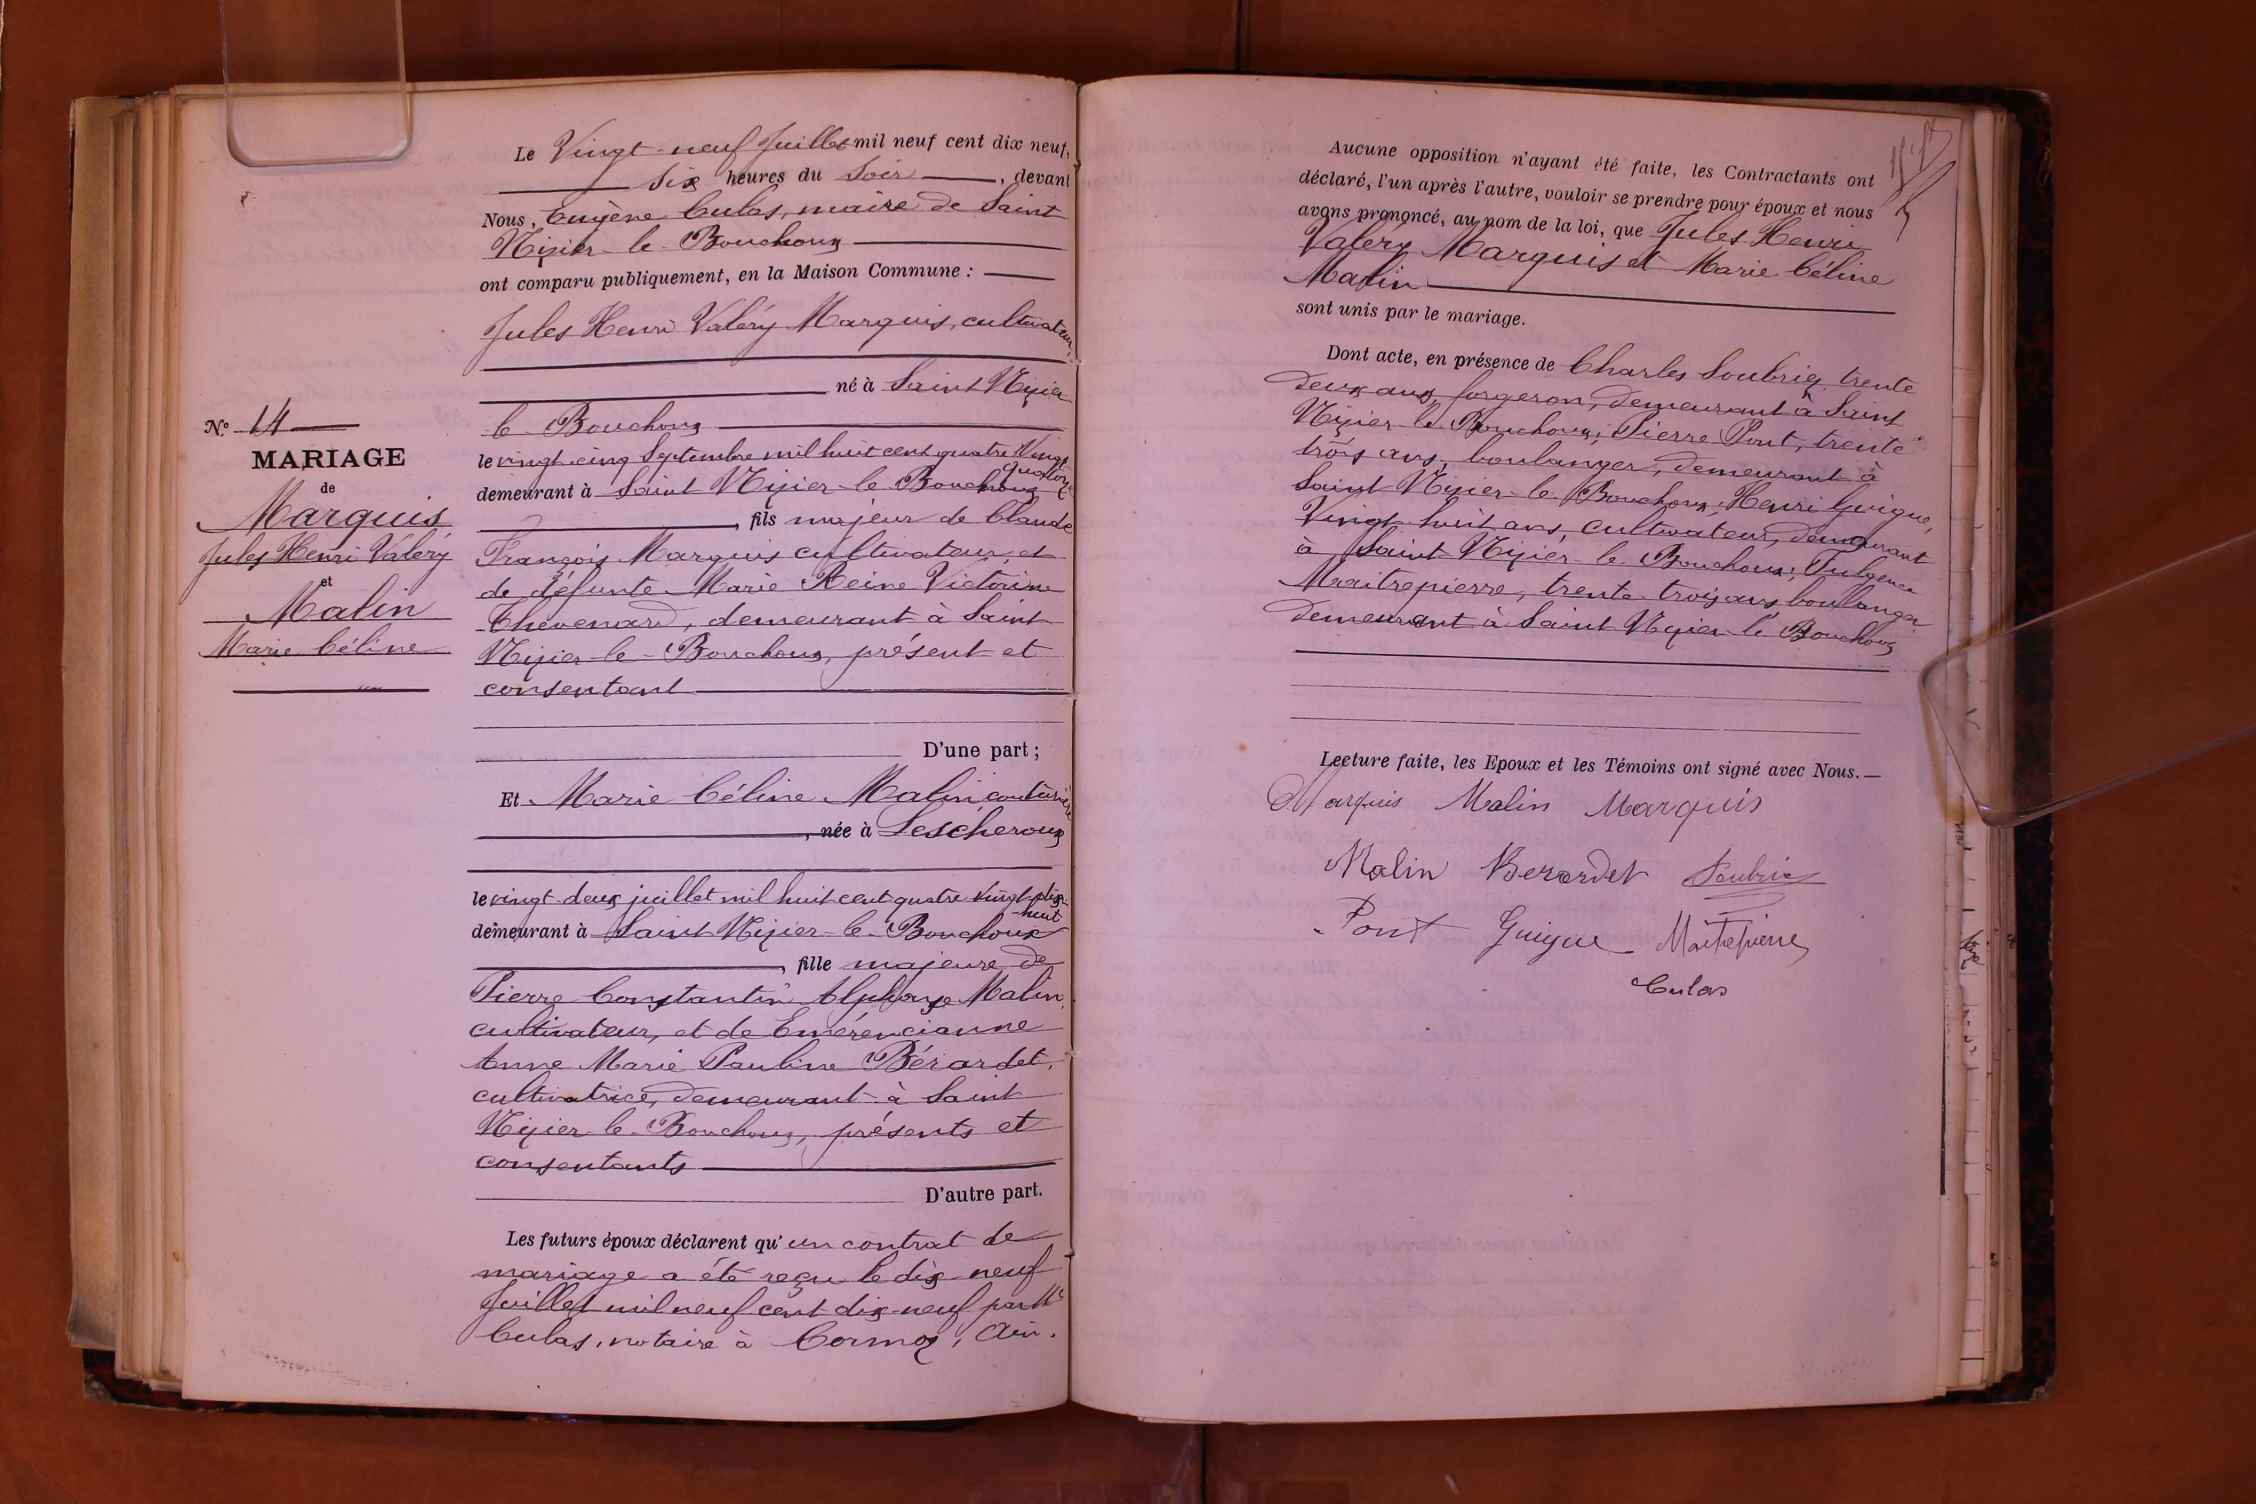 Le Vingt-neuf Juillet mil neuf cent dix neuf,
six heures du soir, devant
Nous, Eugène Culas, maire de Saint
Nizier-le-Bouchoux
ont comparu publiquement, en la Maison Commune :
Jules Henri Valéry Marquis, cultivateur,
né à Saint Nizier
le Bouchoux
le vingt cinq Septembre mil huit cent quatre Vingt
quatorze
demeurant à Saint Nizier-le-Bouchoux
, fils majeur de Claude
François Marquis cultivateur, et
de défunte Marie Reine Victorine
Thevenard, demeurant à Saint
Nizier-le-Bouchoux, présent et
consentant
D'une part ;
Et Marie Céline Malin, couturière
, née à Lescheroux
le vingt-deux juillet mil huit cent quatre vingt-dix-
huit
demeurant à Saint Nizier-le-Bouchoux
, fille majeure de
Pierre Constantin Alphonse Malin,
cultivateur, et de Emérencianne
Anne Marie Pauline Bérardet,
cultivatrice, demeurant à Saint
Nizier-le-Bouchoux, présents et
consentants
D'autre part.
Les futurs époux déclarent qu'un contrat de
mariage a été reçu le dix-neuf
Juillet mil neuf cent dix-neuf par Me
Culas, notaire à Cormoz, Ain.
N° 14
MARIAGE
de
Marquis
Jules Henri Valéry
et
Malin
Marie Céline
Aucune opposition n'ayant été faite, les Contractants ont
déclaré, l'un après l'autre, vouloir se prendre pour époux et nous
avons prononcé, au nom de la loi, que Jules Henri
Valéry Marquis et Marie Céline
Malin
sont unis par le mariage.
Dont acte, en présence de Charles Soubrie, trente
deux ans, forgeron, demeurant à Saint
Nizier-le-Bouchoux, Pierre Pont, trente
trois ans, boulanger, demeurant à
Saint Nizier-le-Bouchoux, Henri Guigue,
Vingt-huit ans, cultivateur, demeurant
à Saint Nizier-le-Bouchoux, Fulgence
Maitrepierre, trente-trois ans, boulanger
demeurant à Saint Nizier-le-Bouchoux
Lecture faite, les Epoux et les Témoins ont signé avec Nous.
Marquis Malin Marquis
Malin Berardet Soubrie
Pont Guigue Maitrepierre
Culas